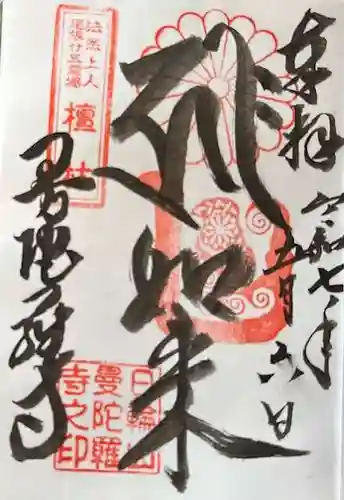 奉拝
令和七年
五月六日
如来
法然上人
尾張廿五霊場
檀
曼陀羅寺
日輪山
曼陀羅
寺之印